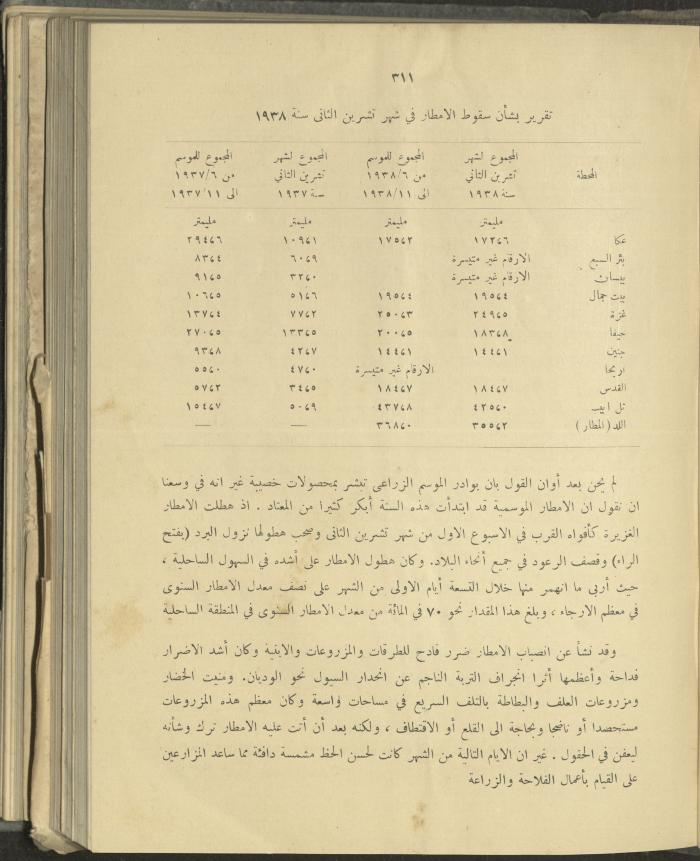 ٣١١
تقرير بشأن سقوط الامطار في شهر تشرين الثانى سنة ١٩٣٨
المحطة المجموع لشهر تشرين الثاني سنة ١٩٣٨ المجموع للموسم من ١٩٣٨/٦ الى ١٩٣٨/١١ المجموع لشهر تشرين الثاني سنة ١٩٣٧ المجموع للموسم من ١٩٣٧/٦ الى ١٩٣٧/١١
مليمتر مليمتر مليمتر مليمتر
عكا ١٧٢٬٦ ١٧٥٬٢ ١٠٩٬١ ٢٩٤٬٦
بئر السبع الارقام غير متيسرة ٦٠٬٩ ٨٣٬٤
بيسان الارقام غير متيسرة ٣٢٬٠ ٩١٬٥
بيت جمال ١٩٥٬٤ ١٩٥٬٤ ٥١٬٦ ١٠٦٬٥
غزة ٢٤٩٬٥ ٢٥٠٬٣ ٧٧٬٢ ١٣٧٬٤
حيفا ١٨٣٬٨ ٢٠٠٬٥ ١٣٣٬٥ ٢٧٠٬٥
جنين ١٤٤٬١ ١٤٤٬١ ٤٢٬٧ ٩٣٬٨
اريحا الارقام غير متيسرة ٤٧٬٠ ٥٥٬٠
القدس ١٨٤٬٧ ١٨٤٬٧ ٣٤٬٥ ٥٧٬٢
تل ابيب ٤٢٥٬٠ ٤٣٧٬٨ ٥٠٬٩ ١٥٤٬٧
اللد (المطار) ٣٥٥٬٢ ٣٦٨٬٠ — —
لم يحن بعد أوان القول بان بوادر الموسم الزراعى تبشر بمحصولات خصيبة غير انه في وسعنا
ان نقول ان الامطار الموسمية قد ابتدأت هذه السنة أبكر كثيرا من المعتاد . اذ هطلت الامطار
الغزيرة كأفواه القرب في الاسبوع الاول من شهر تشرين الثانى وصحب هطولها نزول البرد (بفتح
الراء) وقصف الرعود في جميع أنحاء البلاد. وكان هطول الامطار على أشده في السهول الساحلية ،
حيث أربى ما انهمر منها خلال التسعة أيام الاولى من الشهر على نصف معدل الامطار السنوى
في معظم الارجاء ، وبلغ هذا المقدار نحو ٧٠ في المائة من معدل الامطار السنوى في المنطقة الساحلية
وقد نشأ عن انصباب الامطار ضرر فادح للطرقات والمزروعات والابنية وكان أشد الاضرار
فداحة وأعظمها أثرا انجراف التربة الناجم عن انحدار السيول نحو الوديان. ومنيت الخضار
ومزروعات العلف والبطاطة بالتلف السريع في مساحات واسعة وكان معظم هذه المزروعات
مستحصدا أو ناضجا وبحاجة الى القلع أو الاقتطاف ، ولكنه بعد أن أتت عليه الامطار ترك وشأنه
ليعفن في الحقول . غير ان الايام التالية من الشهر كانت لحسن الحظ مشمسة دافئة مما ساعد المزارعين
على القيام بأعمال الفلاحة والزراعة